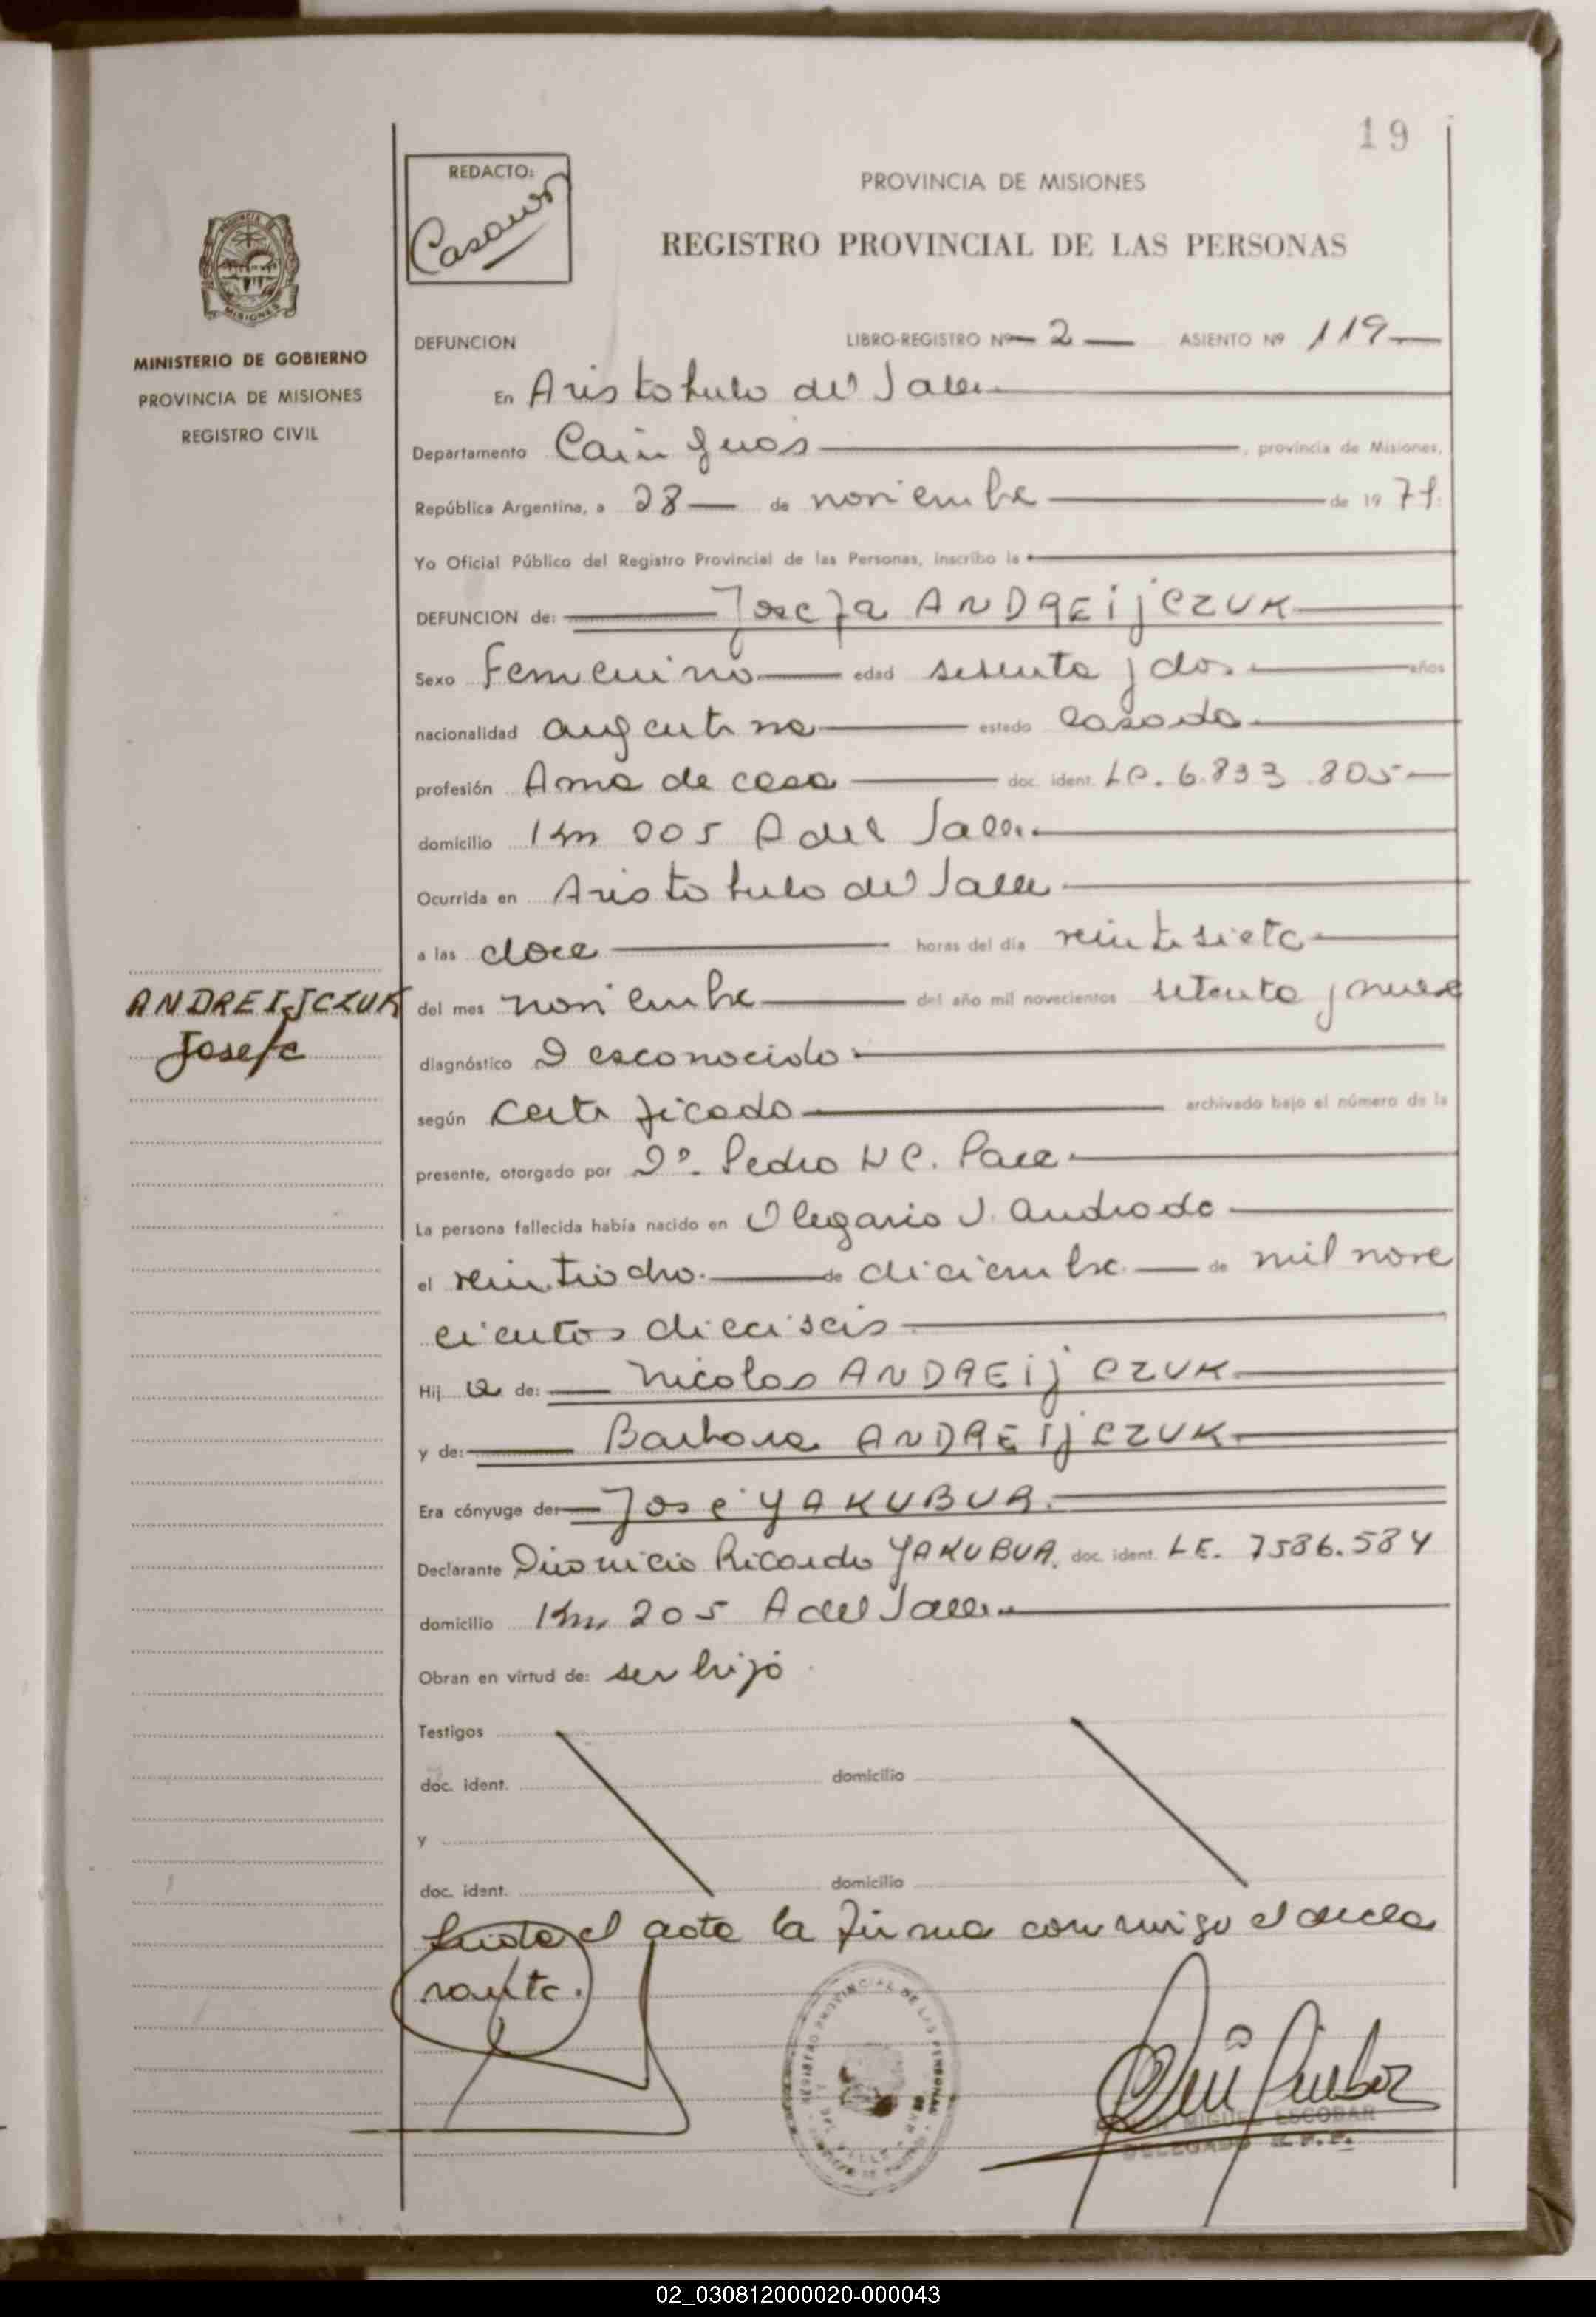 19
REDACTO:
PROVINCIA DE MISIONES
REGISTRO PROVINCIAL DE LAS PERSONAS
MISIONES
MINISTERIO DE GOBIERNO
PROVINCIA DE MISIONES
REGISTRO CIVIL
DEFUNCION LIBRO-REGISTRO Nº 2 ASIENTO Nº 119
En Aristobulo del Valle
Departamento Cainguas, provincia de Misiones,
República Argentina, a 28 de noviembre de 1979.
Yo Oficial Público del Registro Provincial de las Personas, inscribo la
DEFUNCION de: Josefa ANDREijCZUK
Sexo Femenino edad sesenta y dos años
nacionalidad argentina estado casada
profesión Ama de casa doc. ident. LC. 6.833.805
domicilio Km 205 A del Valle
Ocurrida en Aristobulo del Valle
a las doce horas del dia veintisiete
ANDREIJCZUK
Josefa
del mes noviembre del año mil novecientos setenta y nueve
diagnóstico Desconocido
según certificado archivado bajo el número de la
presente, otorgado por Dº. Pedro N C. Pace
La persona fallecida había nacido en Olegario V. Andrade
el veintiocho de diciembre de mil nove
cientos dieciseis
Hij a de: Nicolas ANDREij CZUK
y de: Barbara ANDREIjCZUK
Era cónyuge de: José YAKUBUR.
Declarante Dionicio Ricardo YAKUBUR. doc. ident. LE. 7586.584
domicilio Km 205 A del Valle
Obran en virtud de: ser hijo
Testigos
doc. ident. domicilio
y
doc. ident. domicilio
Leida el acta la firma conmigo el decla
rante.
REGISTRO PROVINCIAL DE LAS PERSONAS
MIGUEL ESCOBAR
DELEGADO R.P.P.
02_030812000020-000043